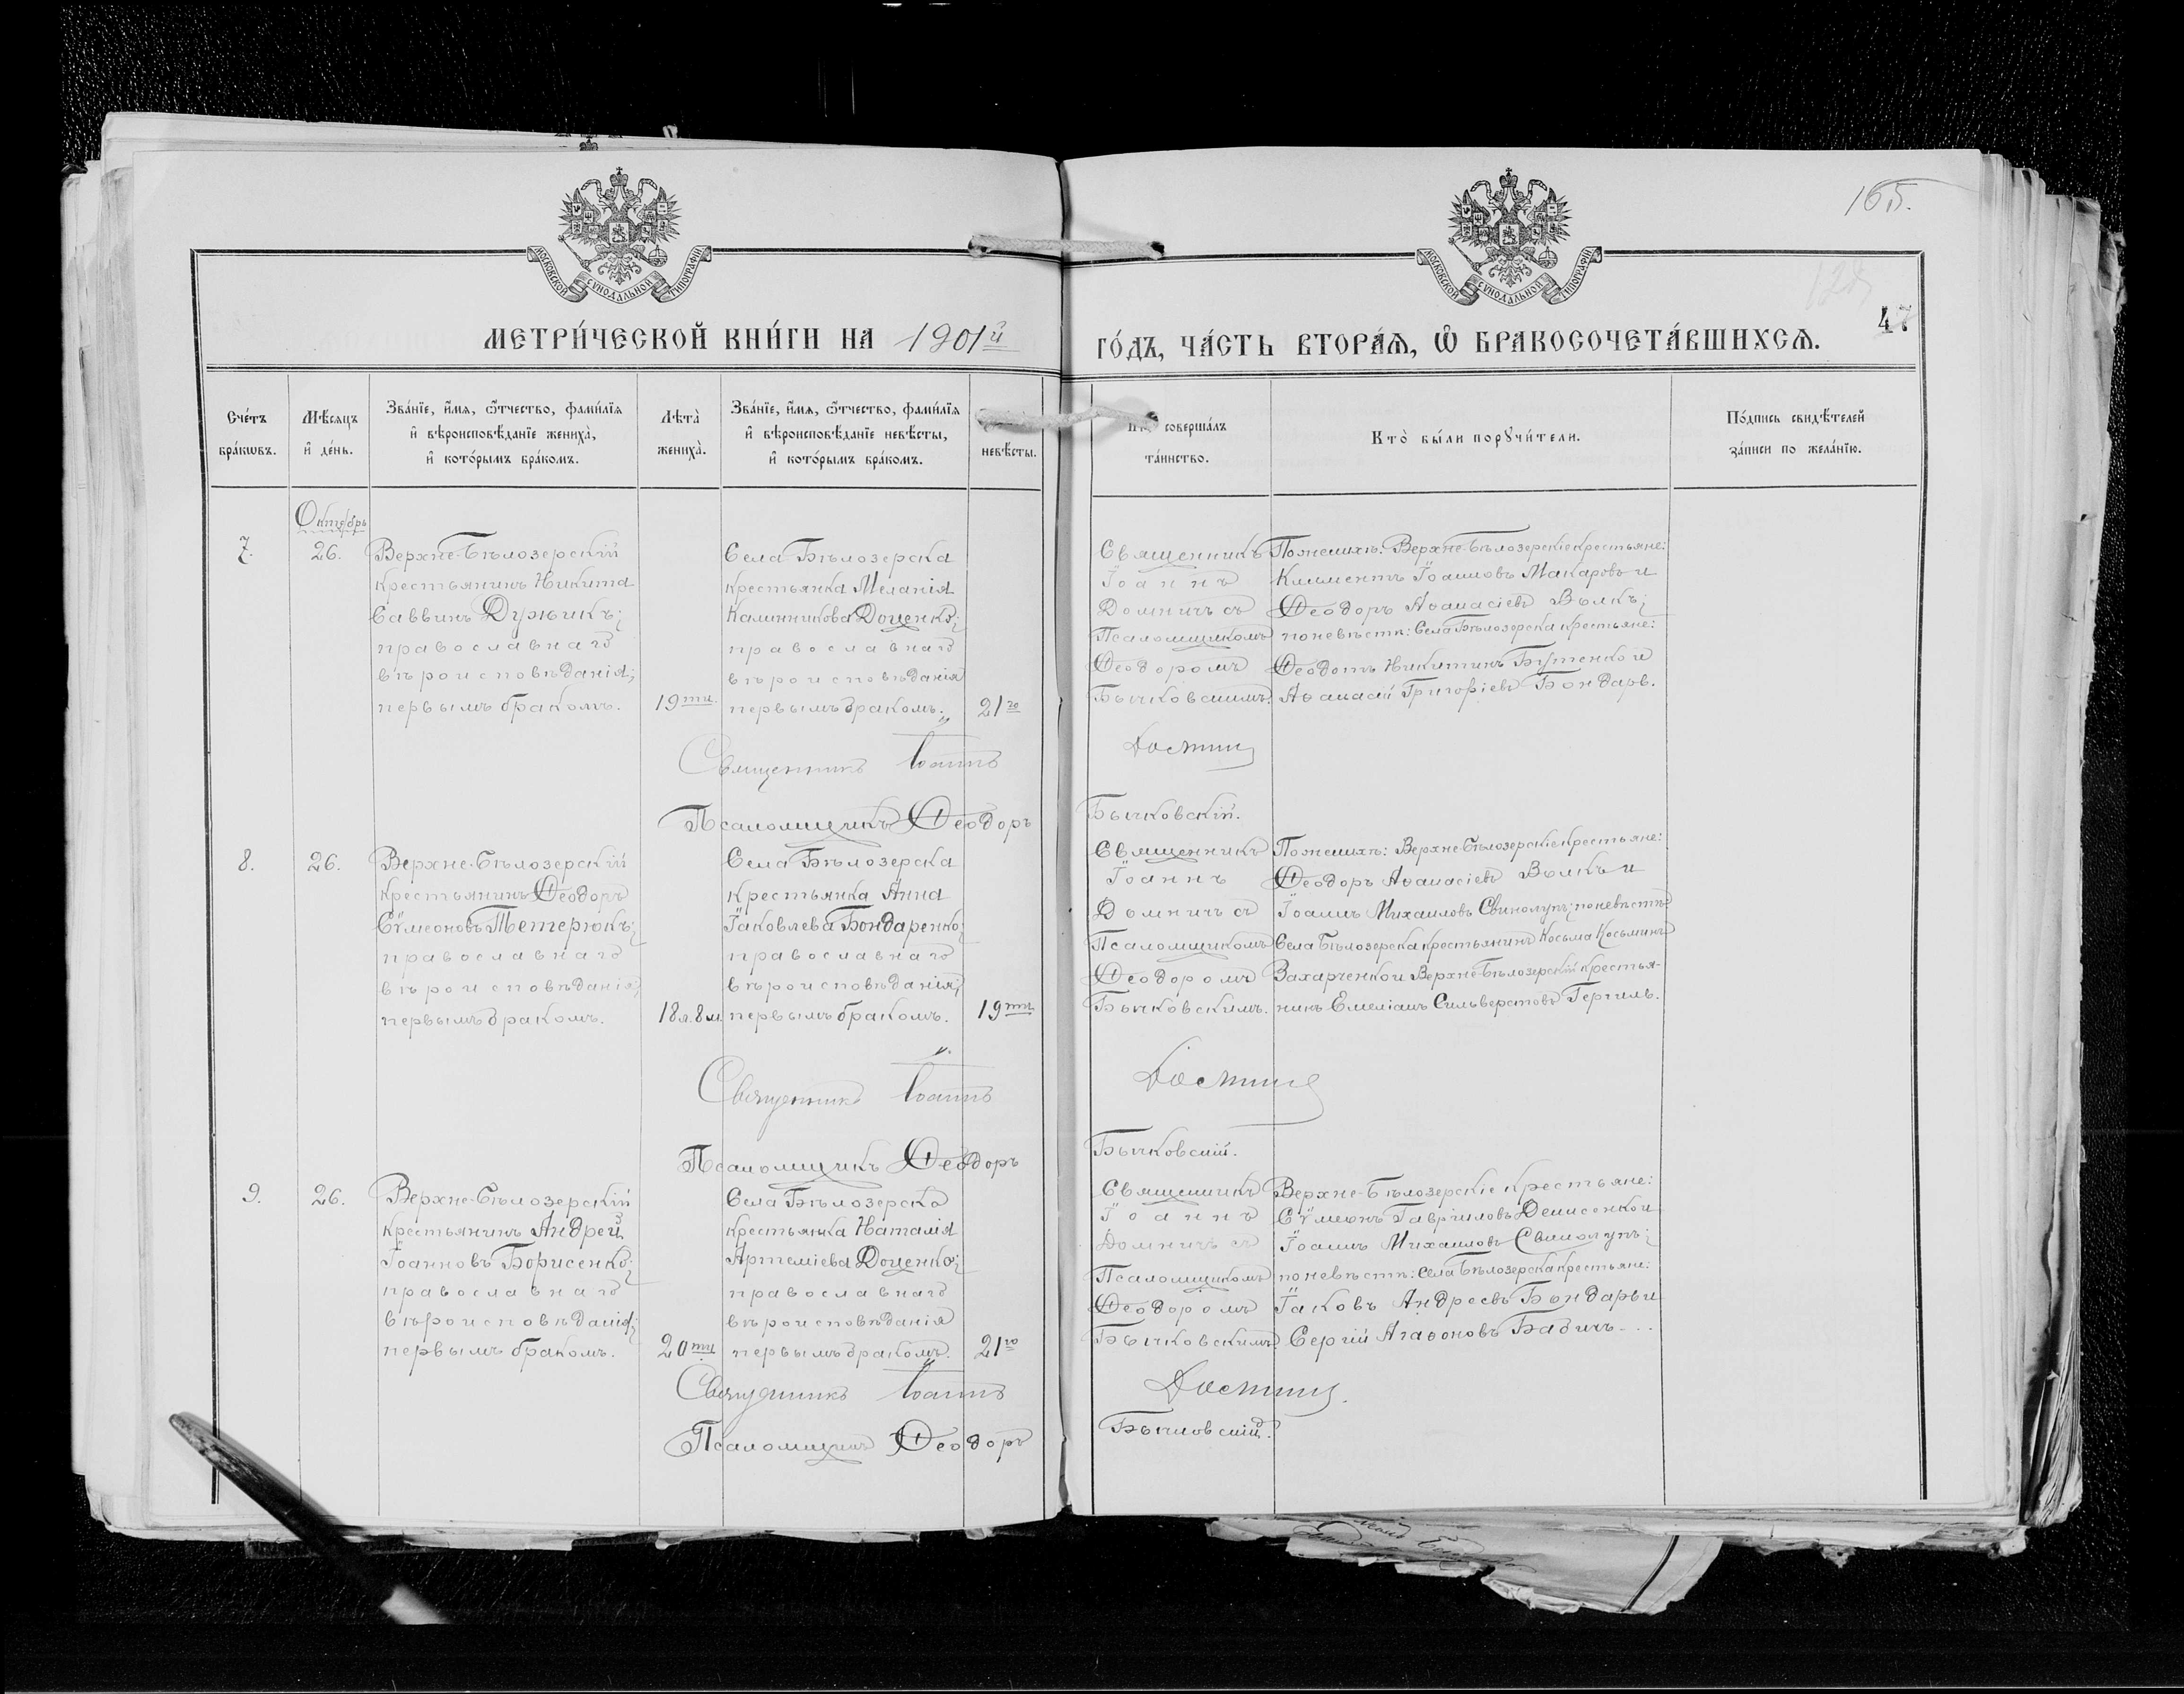 165.
МОСКОВСКОЙ СѴНОДАЛЬНОЙ ТИПОГРАФІИ
МОСКОВСКОЙ СѴНОДАЛЬНОЙ ТИПОГРАФІИ
47
МЕТРИ́ЧЕСКОЙ КНИ́ГИ НА 1901й
ГО́ДЪ, ЧА́СТЬ ВТОРА́Ѧ, Ѿ БРАКОСОЧЕТА́ВШИХСѦ.
Сче́тъ
бра́кѡвъ.
Мѣ́сѧцъ
и҆ де́нь.
Зва́нїе, и҆́мѧ, ѻ҆́тчество, фами́лїѧ
и҆ вѣроисповѣ́данїе жениха̀,
и҆ кото́рымъ бра́комъ.
Лѣта̀
жениха̀.
Зва́нїе, и҆́мѧ, ѻ҆́тчество, фами́лїѧ
и҆ вѣроисповѣ́данїе невѣ́сты,
и҆ кото́рымъ бра́комъ.
невѣ́сты.
соверша́лъ
та́инство.
Кто̀ бы́ли порꙋчи́тели.
По́дпись свидѣ́телей
за́писи по жела́нїю.
Октябрь
7.
26.
Верхне-Бѣлозерскій
крестьянинъ Никита
Саввинъ Дужикъ;
православнаго
вѣроисповѣданія;
первымъ бракомъ.
19ти.
Села Бѣлозерска
крестьянка Меланія
Калинникова Доценко;
православнаго
вѣроисповѣданія
первымъ бракомъ.
21го
Священникъ
Іоаннъ
Домничъ съ
Псаломщикомъ
Ѳеодоромъ
Бычковскимъ.
По женихѣ: Верхне-Бѣлозерскіе крестьяне:
Климентъ Іоанновъ Макаровъ и
Ѳеодоръ Аѳанасіевъ Волкъ;
по невѣстѣ: Села Бѣлозерска крестьяне:
Ѳеодотъ Никитинъ Бутенко и
Аѳанасій Григоріевъ Бондарь.
Священникъ Іоаннъ
Домничъ
Псаломщикъ Ѳеодоръ
Бычковскій.
8.
26.
Верхне-Бѣлозерскій
крестьянинъ Ѳеодоръ
Сѵмеоновъ Тетерюкъ;
православнаго
вѣроисповѣданія;
первымъ бракомъ.
18л.8м.
Села Бѣлозерска
крестьянка Анна
Іаковлева Бондаренко;
православнаго
вѣроисповѣданія;
первымъ бракомъ.
19ти
Священникъ
Іоаннъ
Домничъ съ
Псаломщикомъ
Ѳеодоромъ
Бычковскимъ.
По женихѣ: Верхне-Бѣлозерскіе крестьяне:
Ѳеодоръ Аѳанасіевъ Волкъ и
Іоаннъ Михаиловъ Свинолупъ; по невѣстѣ
Села Бѣлозерска крестьянинъ Косьма Косьминъ
Захарченко и Верхне-Бѣлозерскій крестья-
нинъ Емеліанъ Сильверстовъ Гергиль.
Священникъ Іоаннъ
Домничъ
Псаломщикъ Ѳеодоръ
Бычковскій.
9.
26.
Верхне-Бѣлозерскій
крестьянинъ Андрей
Іоанновъ Борисенко;
православнаго
вѣроисповѣданія;
первымъ бракомъ.
20ти
Села Бѣлозерска
крестьянка Наталія
Артеміева Доценко;
православнаго
вѣроисповѣданія
первымъ бракомъ.
21го
Священникъ
Іоаннъ
Домничъ съ
Псаломщикомъ
Ѳеодоромъ
Бычковскимъ
Верхне-Бѣлозерскіе крестьяне:
Сѵмеонъ Гавріиловъ Денисенко и
Іоаннъ Михаиловъ Свинолупъ;
по невѣстѣ: Села Бѣлозерска крестьяне:
Іаковъ Андреевъ Бондарь и
Сергій Агаѳоновъ Бабичъ...
Священникъ Іоаннъ
Домничъ.
Псаломщикъ Ѳеодоръ
Бычковскій.